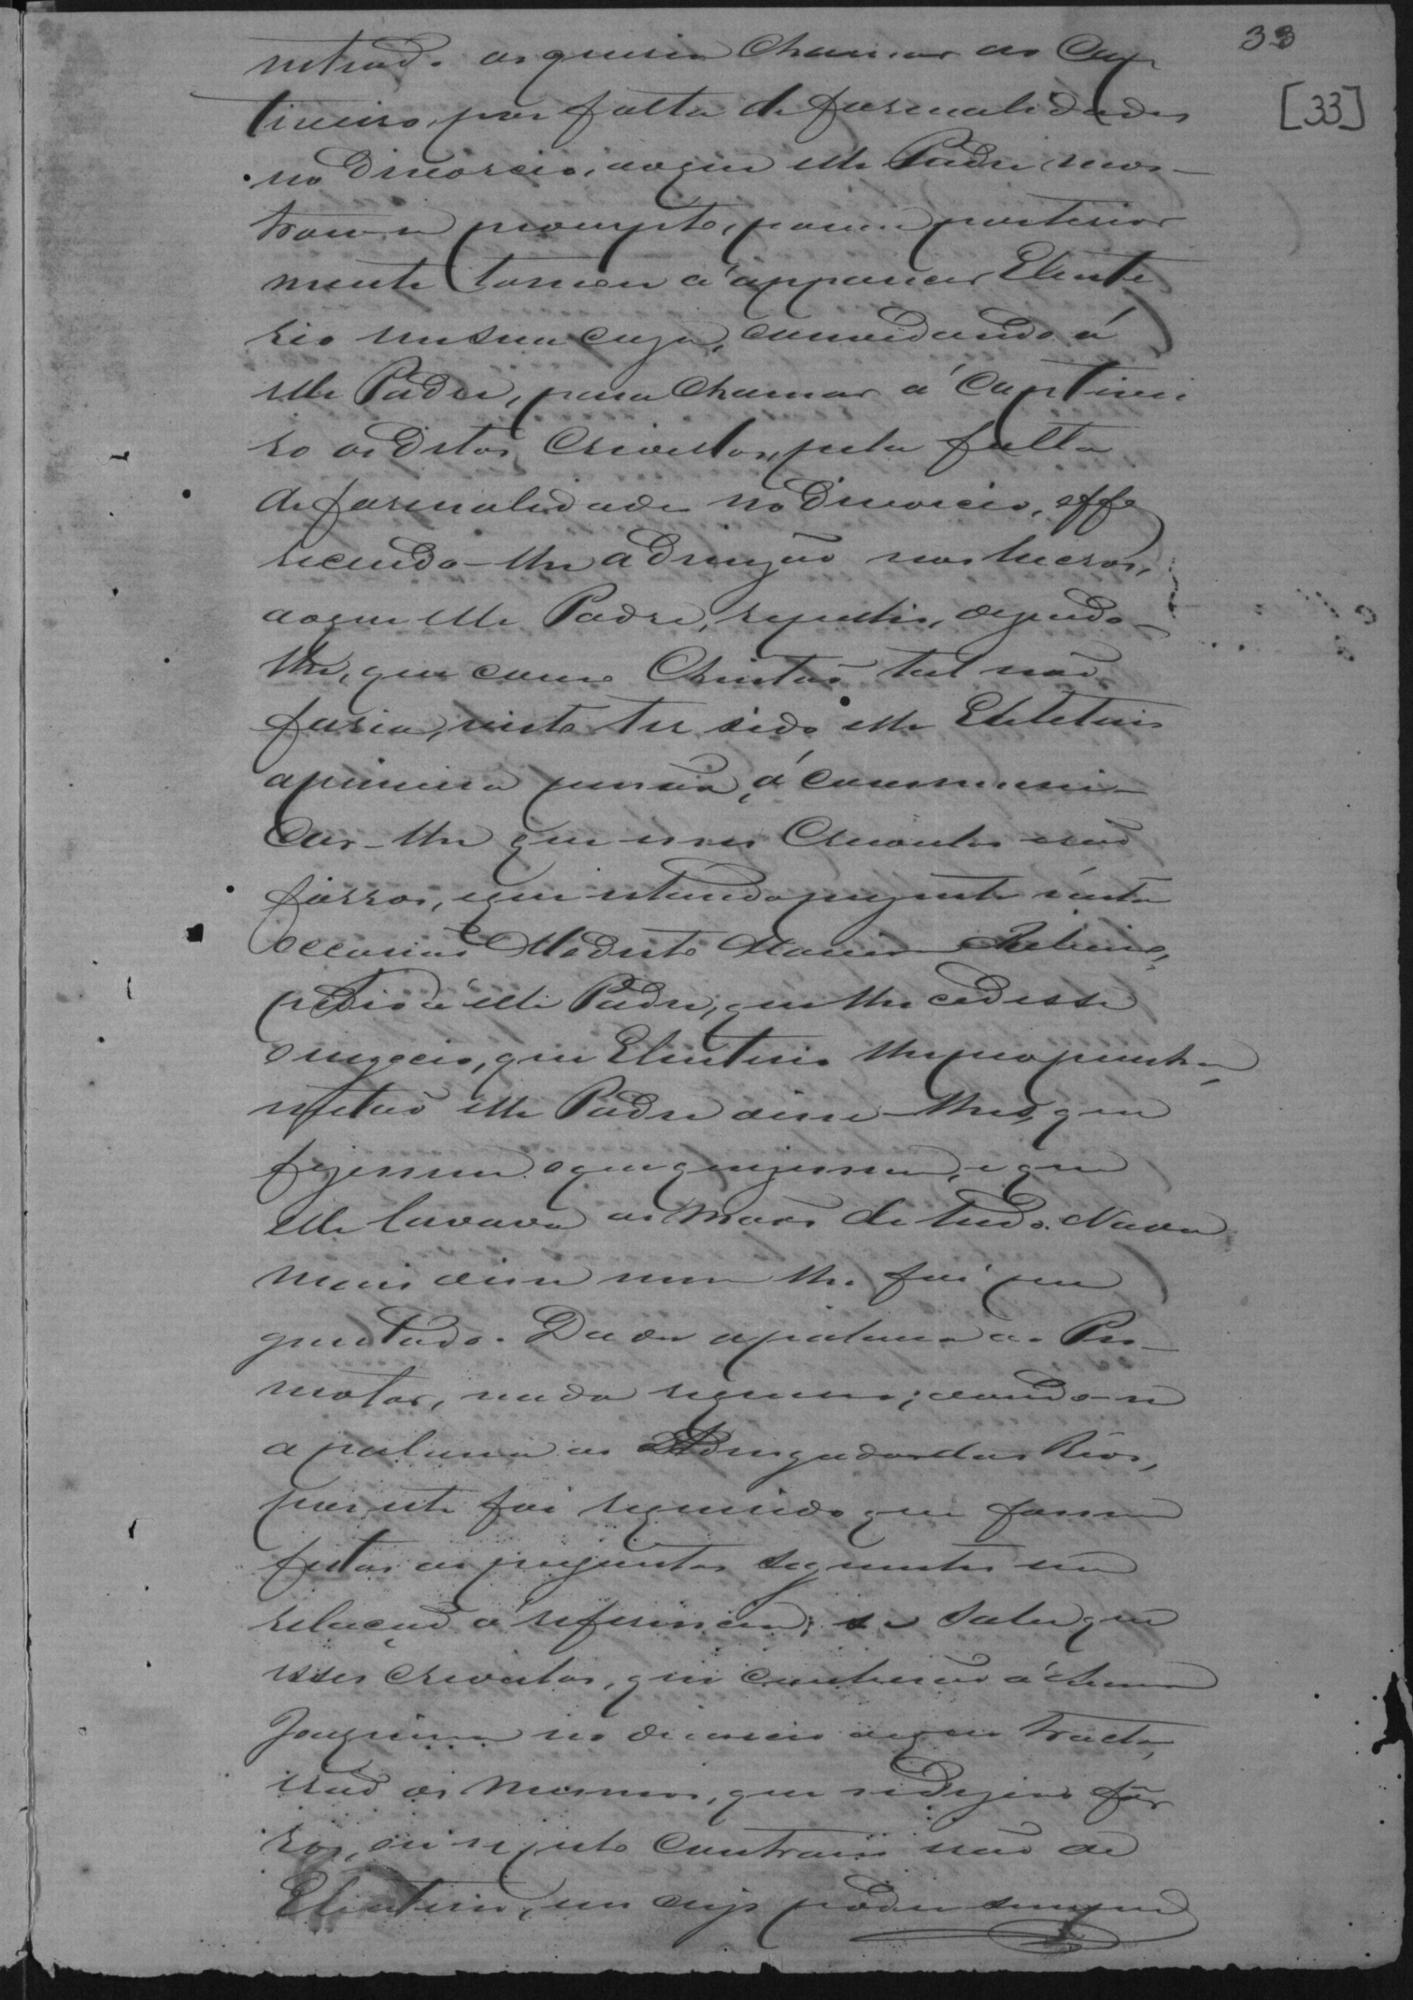 33
[33]
retrado os queria chamar ao Cap
tiveiro, por falta de formalidades
no Divorcio, aoque elle Padre mos-
trou-se prompto, porem posterior
mente tornou a apparecer Eleute
rio em sua caza, convidando á
elle Padre, para chamar á Captivei
ro os ditos Crioulos, pela falta
de formalidade no Divorcio, offe
recendo-lhe a divizão nos lucros,
aoque elle Padre, repellio, dizendo-
lhe, que como Christão tal não
faria, visto ter sido elle Eleuterio
a primeira pessoa, á communi-
car-lhe que esses Crioulos erão
forros, e que estando prezente n'esta
occasião Modesto Maria Ribeiro,
pedio á elle Padre, que lhe cedesse
o negocio, que Eleuterio lhe propunha,
então elle Padre disse-lhes, que
fizessem o que quizessem, e que
elle lavava as mãos de tudo. Nada
mais disse nem lhe foi per
guntado. Dada a palavra ao Pro-
motor, nada requereu; dando-se
a palavra ao Advogado dos Réos,
por este foi requerido que fossem
feitas as perguntas seguintes em
relação á referencia; se sabe que
esses crioulos, que couberão á Dona
Joaquina no divorcio de que tracta,
erão os mesmos, que se dizião for
ros, ou se pelo contrario não de
Eleuterio, em cujo poder sempre